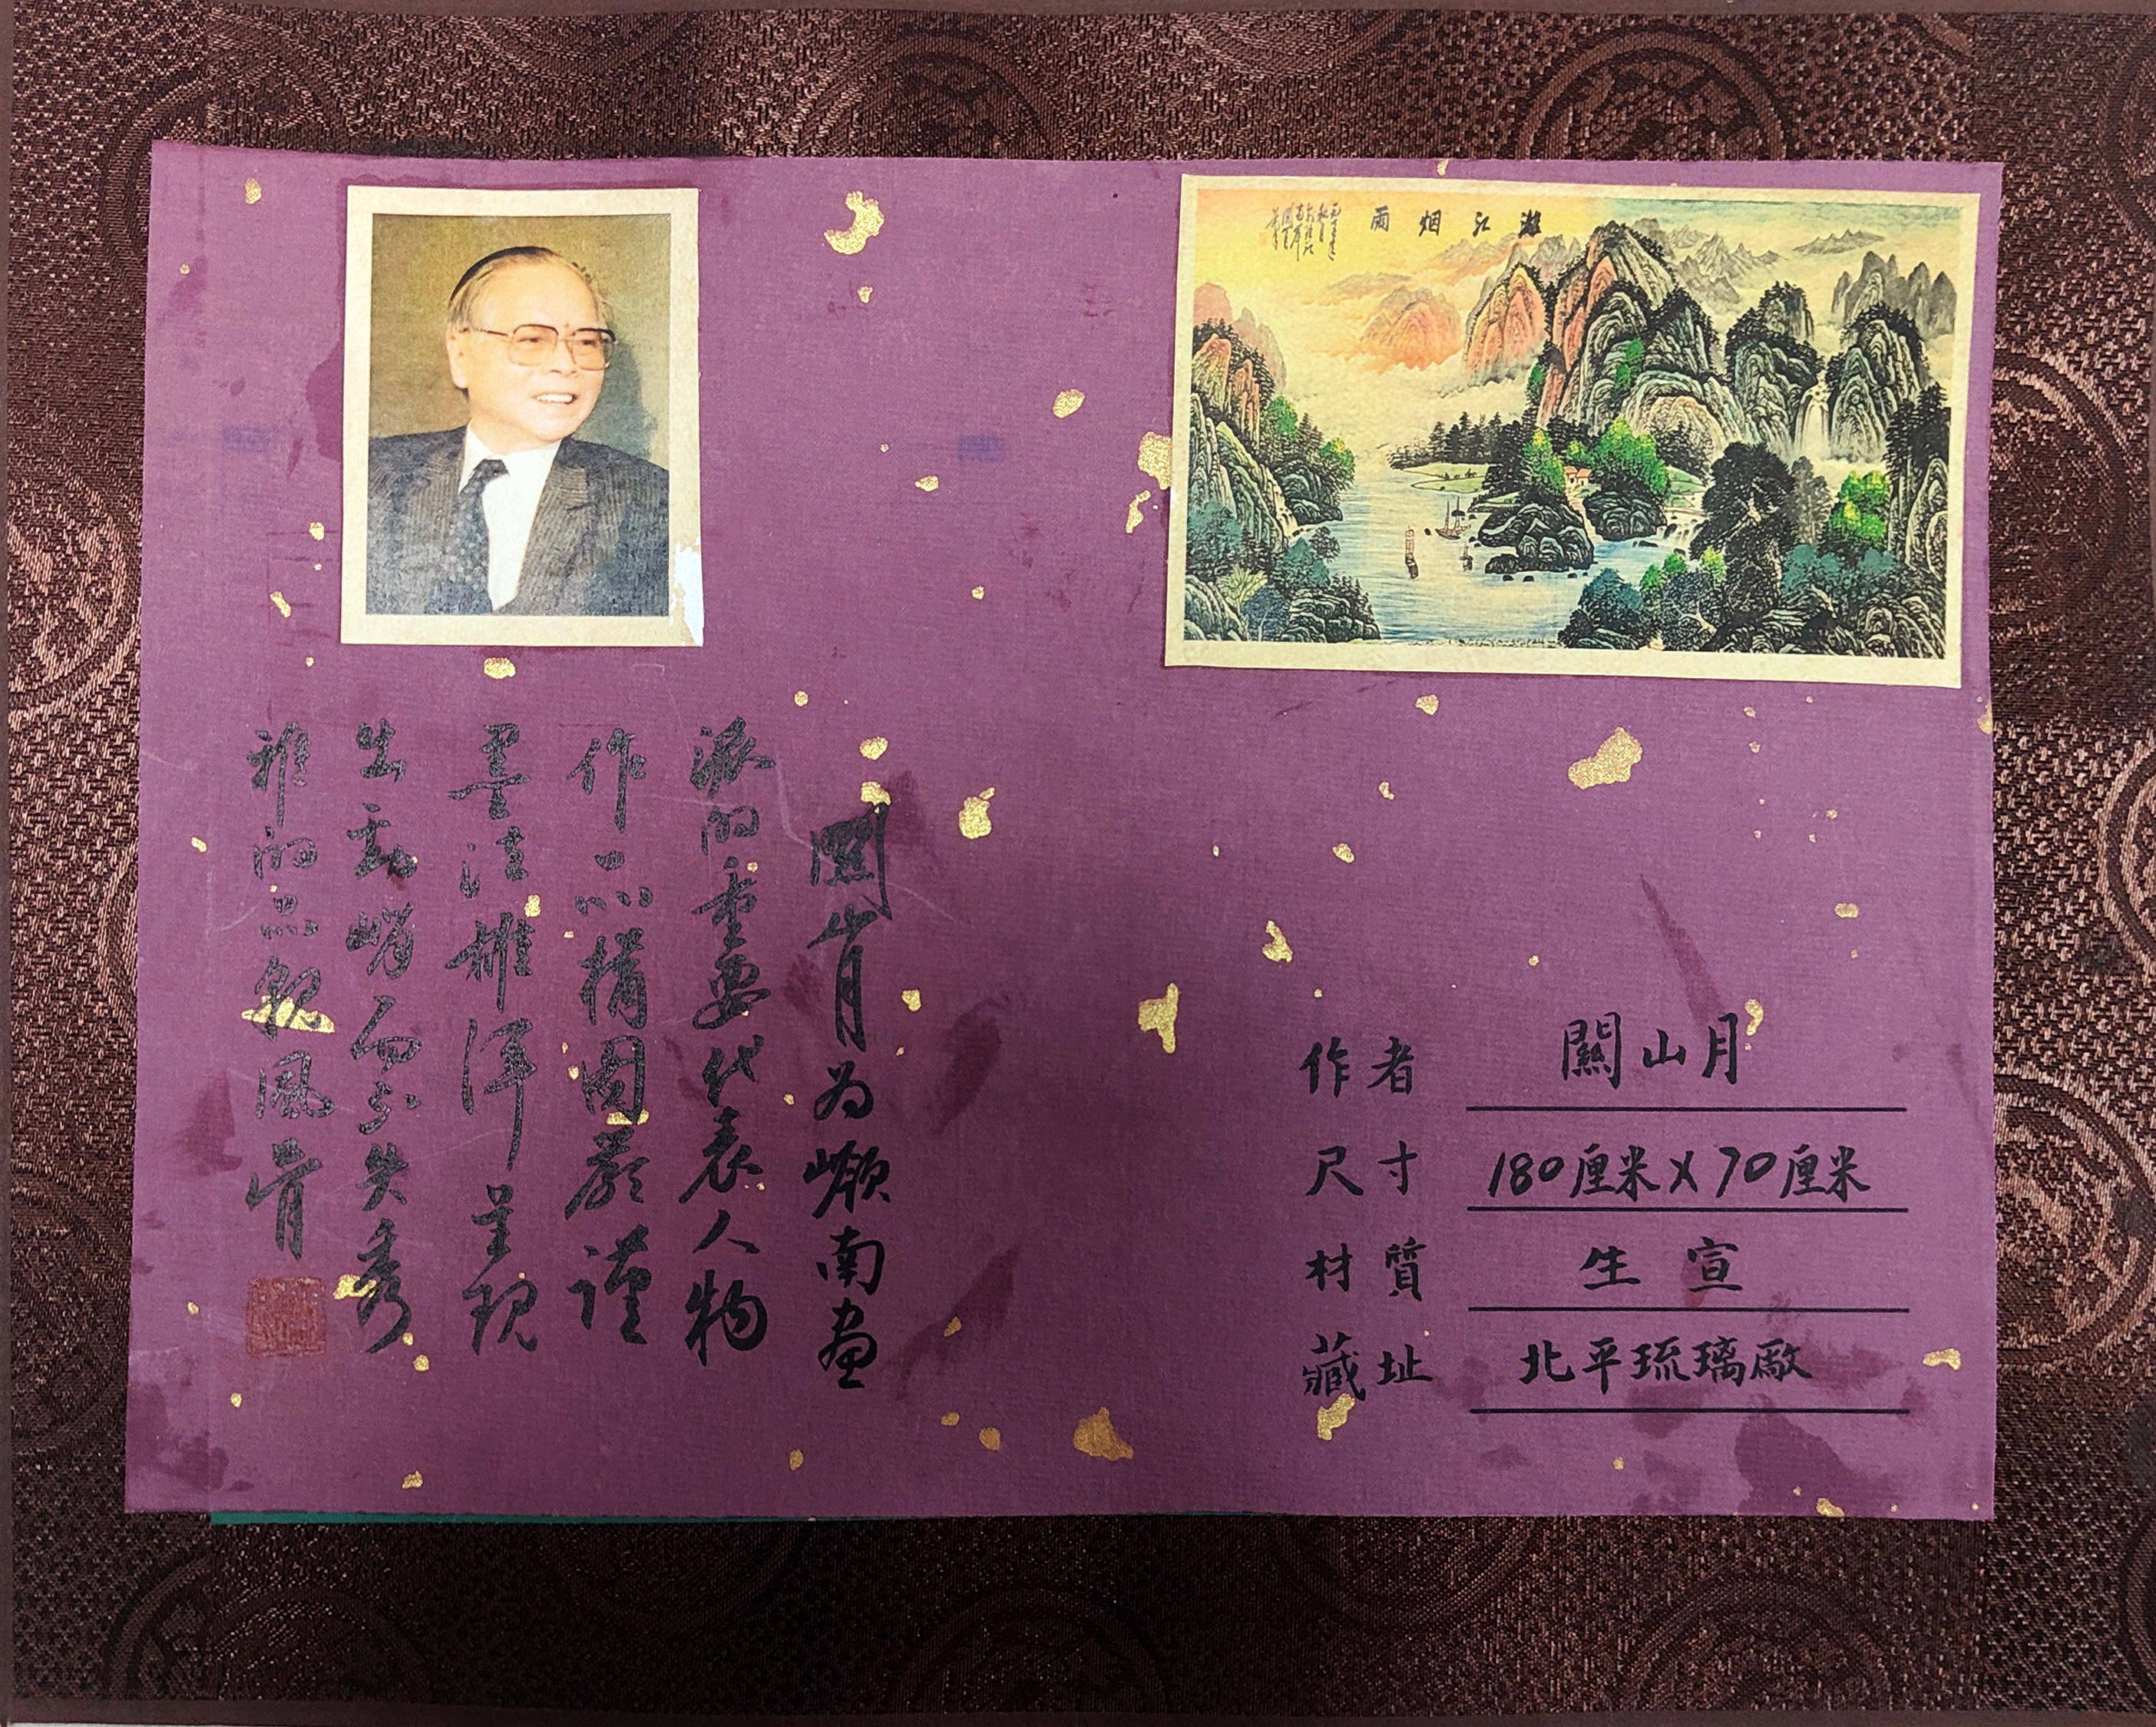 漓江烟雨
關山月为嶺南画
派的重要代表人物
作品構图嚴謹
墨法雄浑呈现
出劲峭而不失秀
雅的品貌風骨
作者 關山月
尺寸 180厘米X70厘米
材質 生宣
藏址 北平琉璃厰